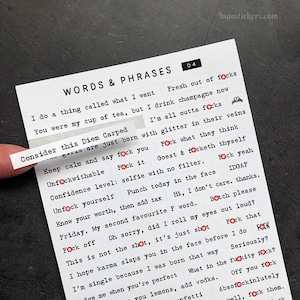 bujostickers.com
WORDS & PHRASES 04
I do a thing called what I want Fresh out of focks
You were my cup of tea, but I drink champagne now
I'm all outta focks
girls are just born with glitter in their veins
Consider this Diem Carped
Keep calm and say fock you Fock what they think
Unfockwithable Fock it Goest & focketh thyself
Confidence level: selfie with no filter. Fock yeah
Unfock yourself Punch today in the face IDGAF
Know your worth, then add tax Hi, I don't care. thanks.
Friday. My second favourite F word. Botch please
Fock off Oh sorry, did I roll my eyes out loud?
This is not the shot, it's just shot Fock that
I hope karma slaps you in the face before I do
I'm single because I was born that way Seriously?
me when you're perfect What in the fuckity Off you
you lemons, add vodka. Fock of
Absofockinlutely